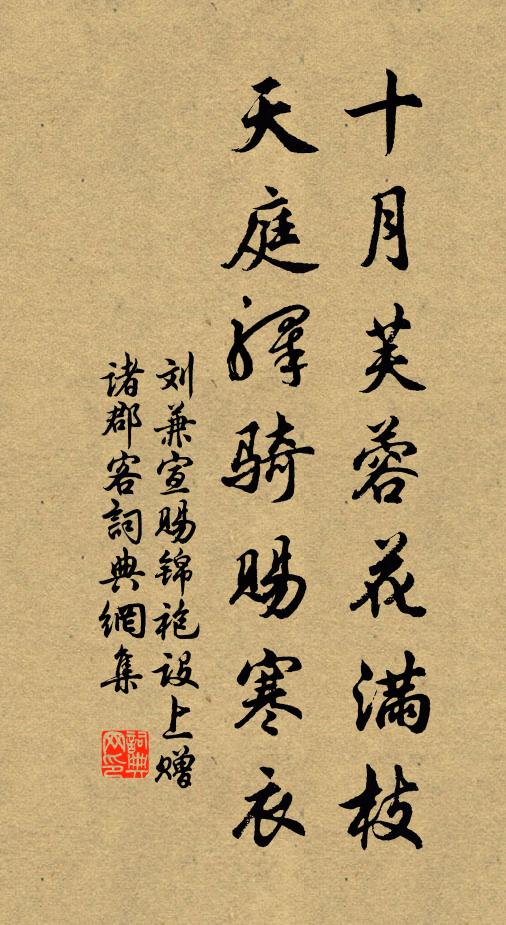 十月芙蓉花满枝
天庭驿骑赐寒衣
刘兼宣赐锦袍设上赠
诸郡客词典網集
詞典網印